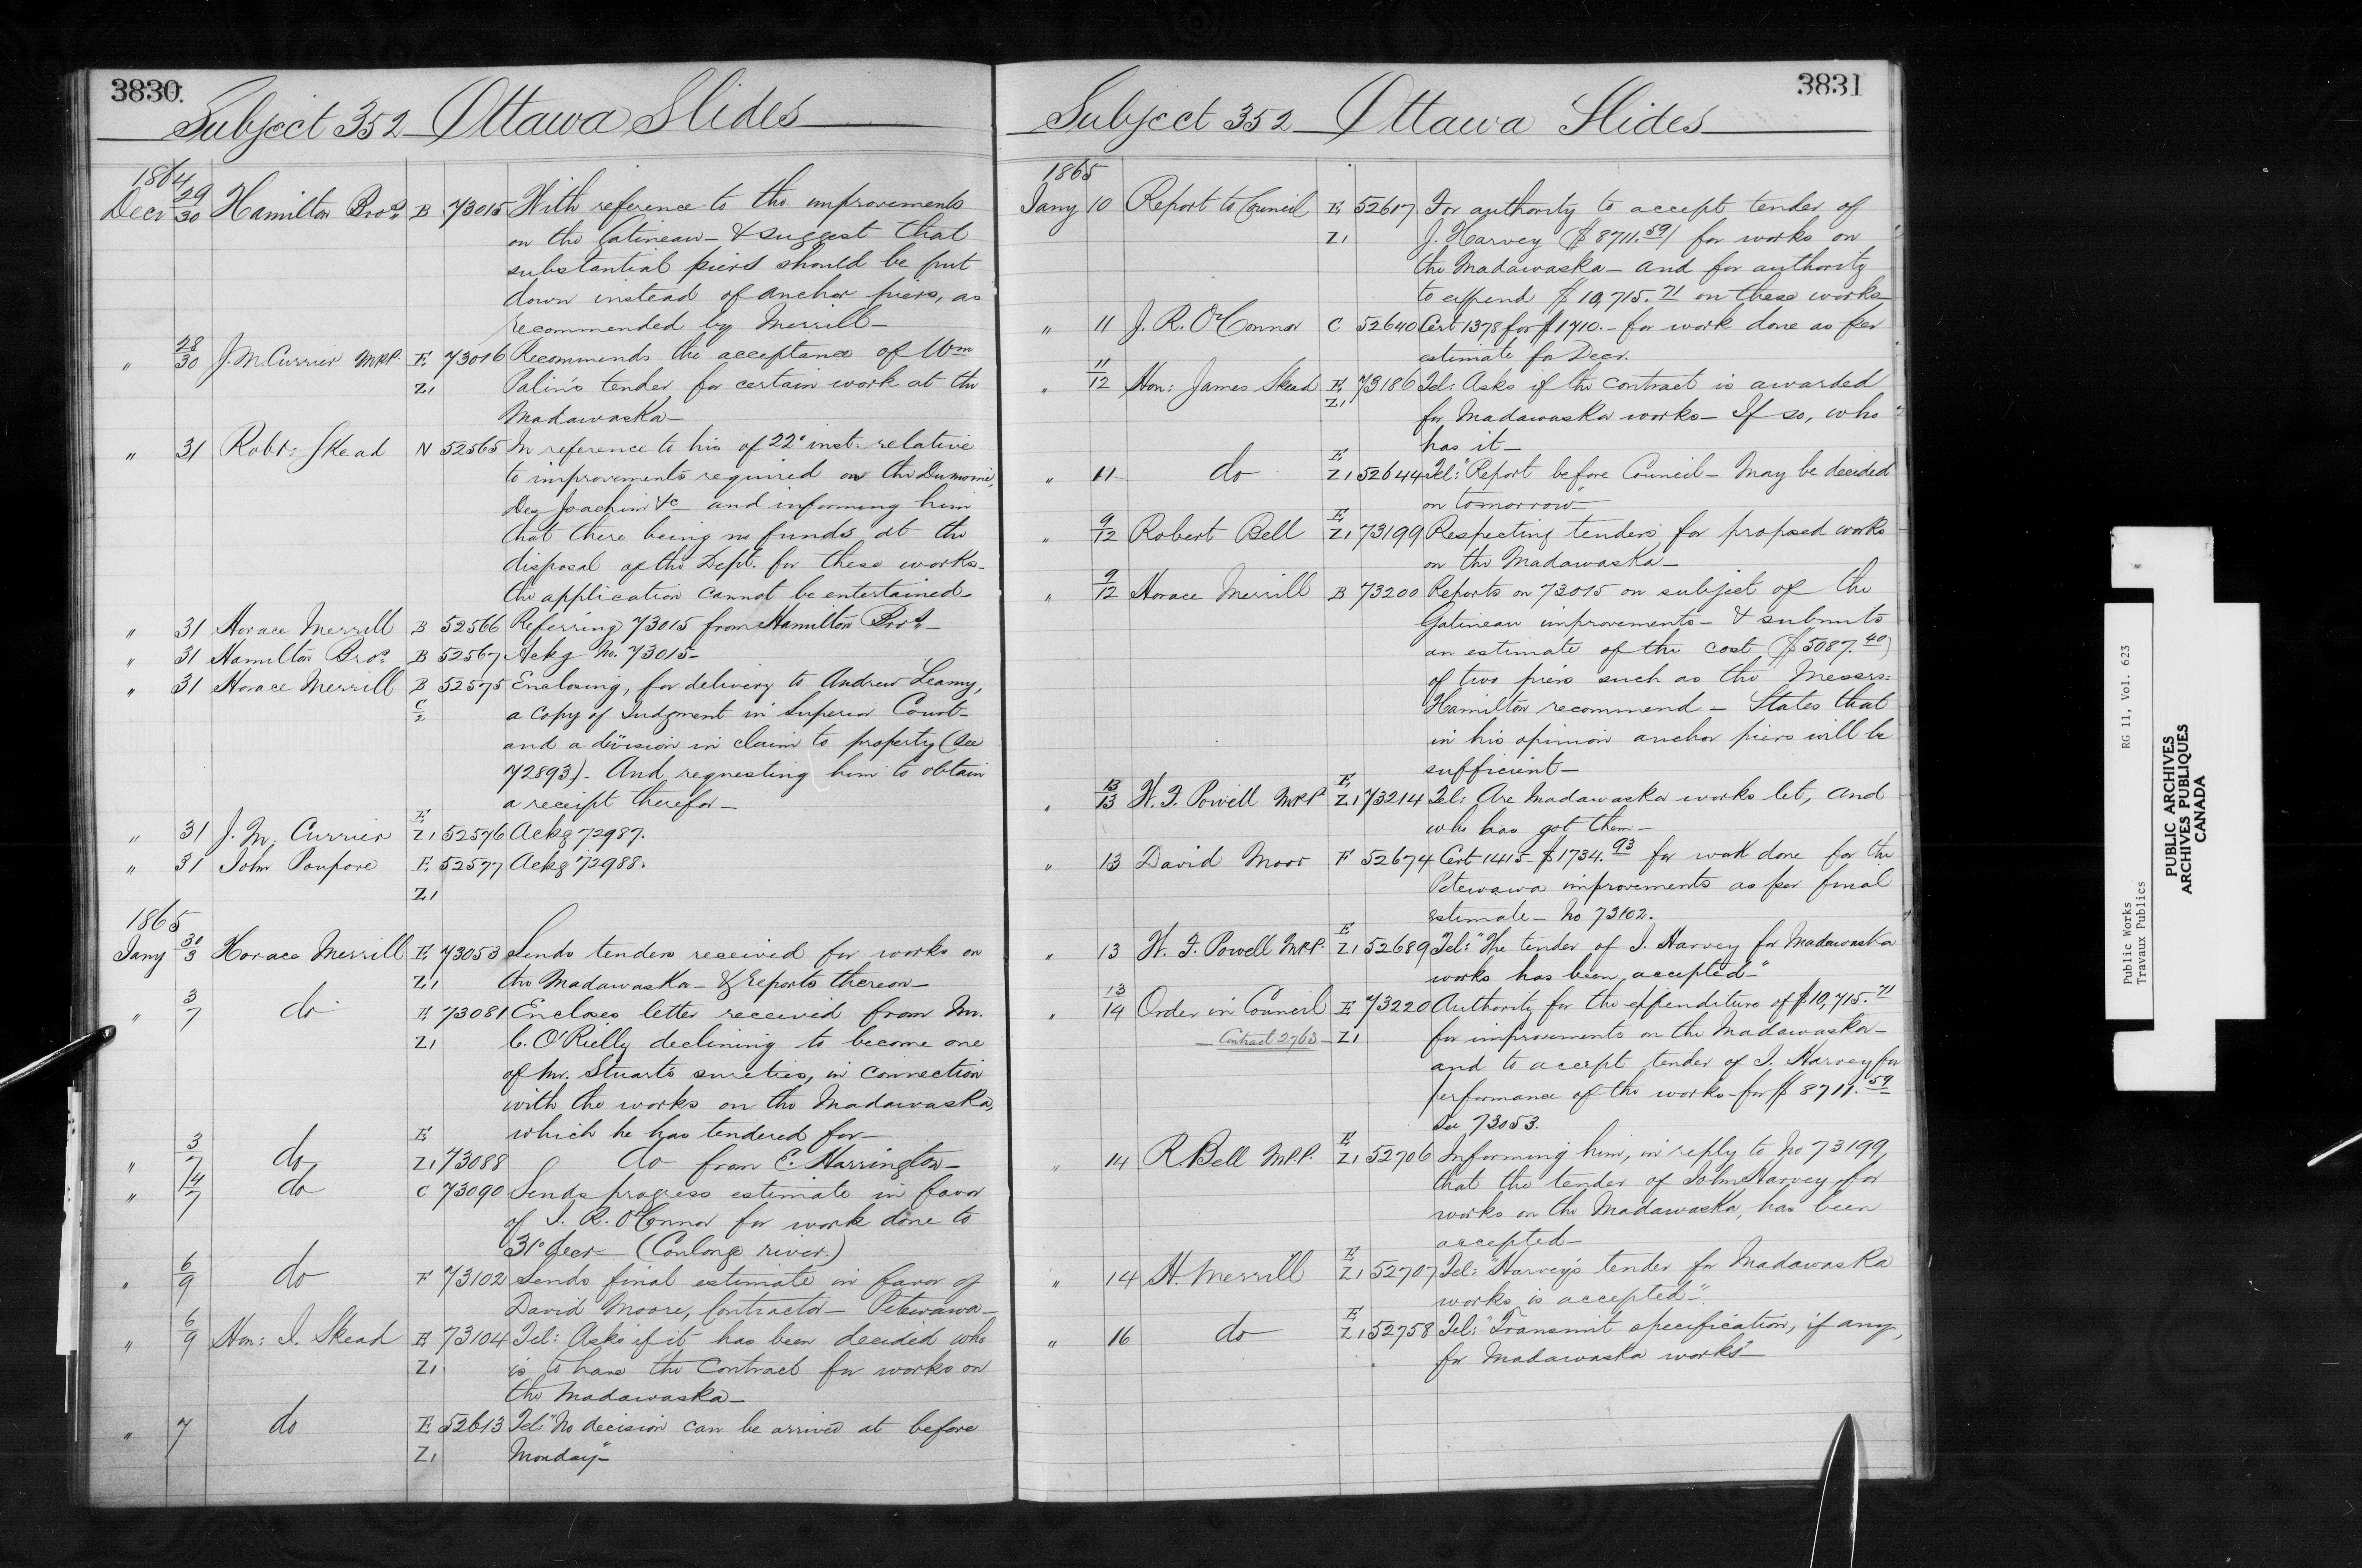 3830.
Subject 352 Ottawa Slides
1864
Decr 29/30 Hamilton Bros. B 73015 With reference to the improvements
on the Gatineau - & suggest that
substantial piers should be put
down instead of anchor piers, as
recommended by Merrill -
" 28/30 J. M. Currier MPP. E 73016 Recommends the acceptance of Wm
Z1 Palin's tender for certain work at the
Madawaska -
" 31 Robt: Skead N 52565 In reference to his of 22d inst. relative
to improvements required on the Dumoine,
Des Joachim &c and informing him
that there being no funds at the
disposal of the Dept. for these works -
the application cannot be entertained -
" 31 Horace Merrill B 52566 Referring 73015 from Hamilton Bros. -
" 31 Hamilton Bros. B 52567 Ackg No. 73015 -
" 31 Horace Merrill B 52575 Enclosing, for delivery to Andrew Leamy,
C/2 a copy of Judgment in Superior Court -
and a division in claim to property (See
72893) - And requesting him to obtain
a receipt therefor -
" 31 J. M. Currier E Z1 52576 Ackg 72987.
" 31 John Poupore E 52577 Ackg 72988.
Z1
1865
Jany 31/3 Horace Merrill E 73053 Sends tenders received for works on
Z1 the Madawaska - & Reports thereon -
" 3/7 do E 73081 Encloses letter received from Mr.
Z1 C. O'Rielly declining to become one
of Mr. Stuarts sureties, in connection
with the works on the Madawaska,
which he has tendered for -
" 3/7 do E Z1 73088 do from E. Harrington -
" 4/7 do C 73090 Sends progress estimate in favor
of J. R. O'Connor for work done to
31st decr - (Coulonge river.)
" 6/9 do F 73102 Sends final estimate in favor of
David Moore, Contractor - Petewawa -
" 6/9 Hon: J. Skead E 73104 Tel: Asks if it has been decided who
Z1 is to have the Contract for works on
the Madawaska -
" 7 do E 52613 Tel: "No decision can be arrived at before
Z1 Monday" -
3831
Subject 352 Ottawa Slides
1865
Jany 10 Report to Council E 52617 For authority to accept tender of
Z1 J. Harvey ($8711.59) for works on
the Madawaska - and for authority
to expend $10,715.71 on these works -
" 11 J. R. O'Connor C 52640 Cert 1378 for $1710. - for work done as per
estimate for Decr.
" 11/12 Hon: James Skead E 73186 Tel: Asks if the contract is awarded
Z1 for Madawaska works - If so, who
has it -
" 11 do E Z1 52644 Tel: "Report before Council - May be decided
on tomorrow" -
" 9/12 Robert Bell E Z1 73199 Respecting tenders for proposed works
on the Madawaska -
" 9/12 Horace Merrill B 73200 Reports on 73015 on subject of the
Gatineau improvements - & submits
an estimate of the cost ($5087.40)
of two piers such as the Messrs:
Hamilton recommend - States that
in his opinion anchor piers will be
sufficient -
" 13/13 W. F. Powell MPP E Z1 73214 Tel: Are Madawaska works let, and
who has got them -
" 13 David Moor F 52674 Cert 1415 - $1734.93 for work done for the
Petewawa improvements as per final
estimate - No 73102.
" 13 W. F. Powell MPP. E Z1 52689 Tel: "The tender of J. Harvey for Madawaska
works has been accepted -"
" 13/14 Order in Council E 73220 Authority for the expenditure of $10,715.71
- Contract 2763 - Z1 for improvements on the Madawaska -
and to accept tender of J. Harvey for
performance of the works - for $8711.59
See 73053.
" 14 R. Bell M.P.P. E Z1 52706 Informing him, in reply to No 73199,
that the tender of John Harvey for
works on the Madawaska, has been
accepted -
" 14 H. Merrill E Z1 52707 Tel: "Harvey's tender for Madawaska
works is accepted -"
" 16 do E Z1 52758 Tel: "Transmit specification, if any,
for Madawaska works" -
Public Works RG 11, Vol. 623
Travaux Publics
PUBLIC ARCHIVES
ARCHIVES PUBLIQUES
CANADA